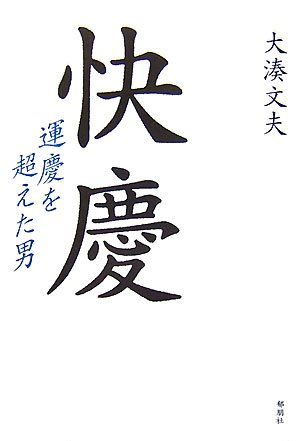 大湊文夫
快慶
運慶を
超えた男
郁朋社